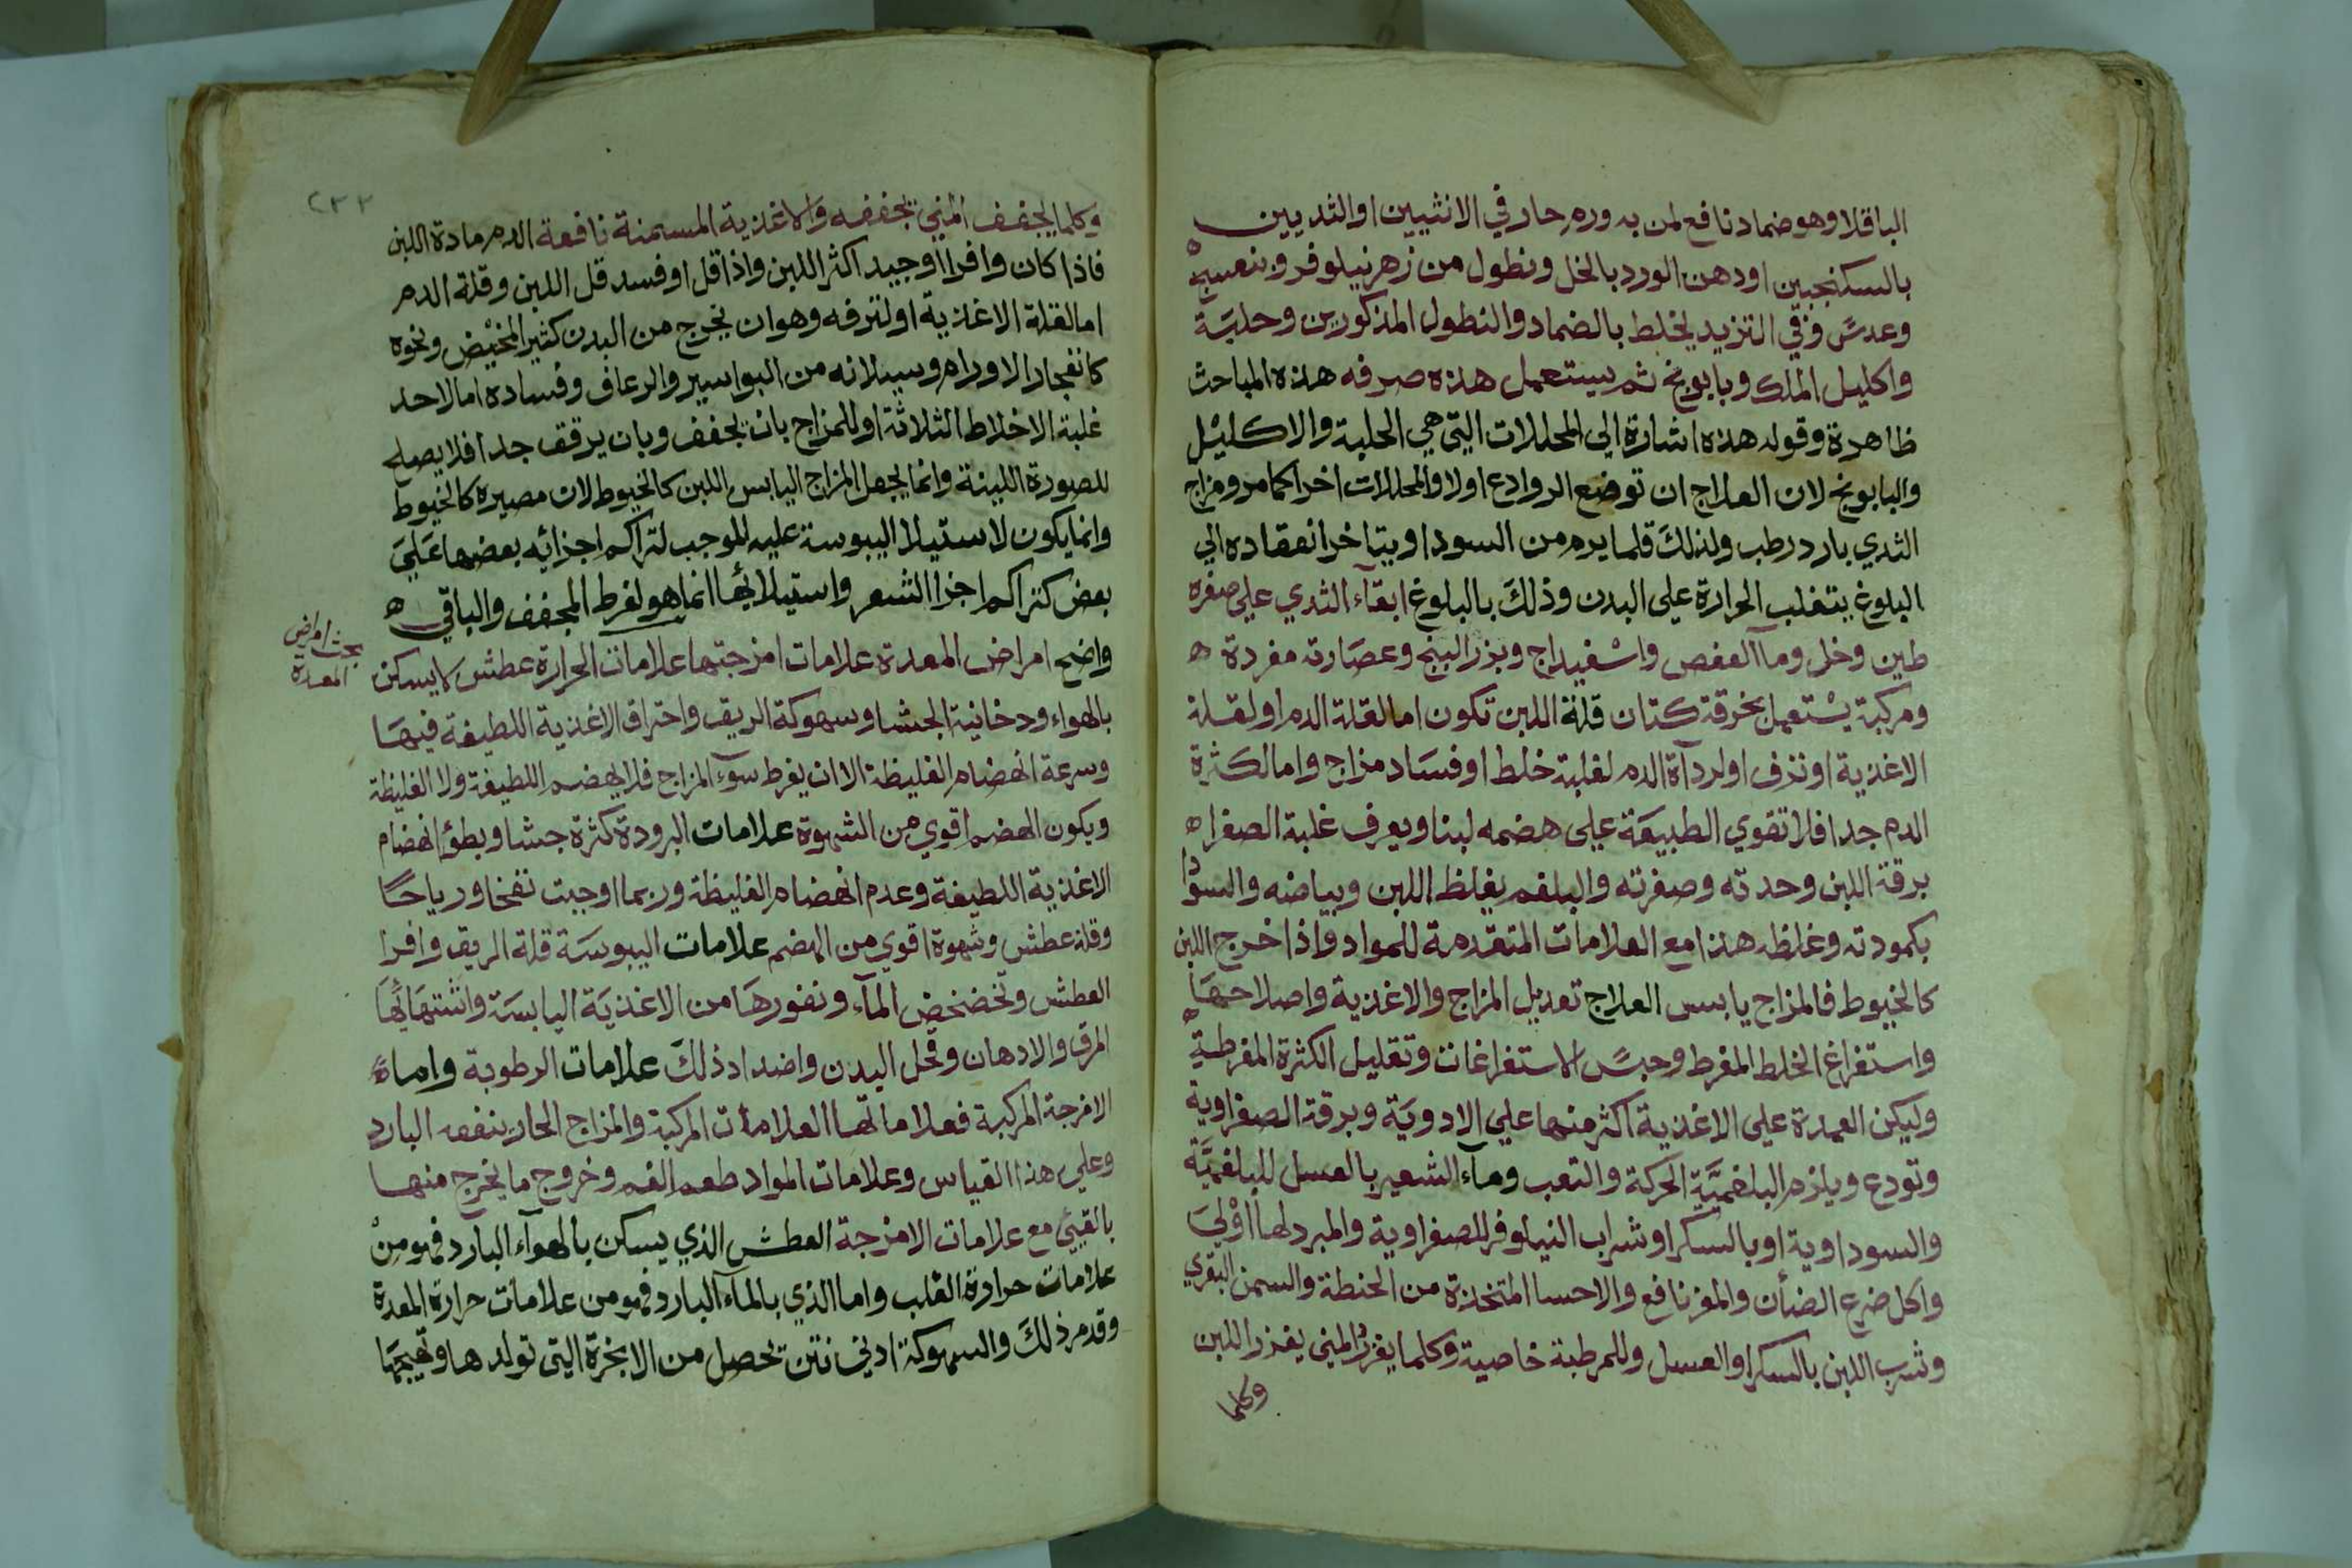 الباقلا وهو ضماد نافع لمن به ورم حار في الانثيين او الثديين
بالسكنجبين اودهن الورد بالخل ونطول من زهر نيلوفر وبنفسج
وعدس وفي التزيد يخلط بالضماد والنطول المذكورين وحلبة
واكليل الملك وبابونج ثم يستعمل هذه صرفه هذه المباحث
ظاهرة وقوله هذه اشارة الى المحللات التي هي الحلبة والاكليل
والبابونج لان العلاج ان توضع الروادع اولا والمحللات اخرا كما مر ومزاج
الثدي بارد رطب ولذلك قلما يرم من السودا ويتاخر انعقاده الي
البلوغ يتغلب الحرارة علي البدن وذلك بالبلوغ ابقاء الثدي علي صغره
طين وخل وما العفص واسفيداج وبزر البنج وعصارته مفردة
ومركبة يستعمل بخرقة كتان قلة اللبن تكون اما لقلة الدم او لقلة
الاغذية او نزف او لردآة الدم لغلبة خلط او فساد مزاج واما لكثرة
الدم جدا فلا تقوي الطبيعة علي هضمه لبنا ويعرف غلبة الصفرا
برقة اللبن وحدته وصفرته والبلغم بغلظ اللبن وبياضه والسودا
بكمودته وغلظه هذا مع العلامات المتقدمة للمواد واذا خرج اللبن
كالخيوط فالمزاج يابس العلاج تعديل المزاج والاغذية واصلاحها
واستفراغ الخلط المفرط وحبس الاستفراغات وتقليل الكثرة المفرطة
وليكن العمدة علي الاغذية اكثر منها علي الادوية وبرقة الصفراوية
وتودع ويلزم البلغمية الحركة والتعب وماء الشعير بالعسل للبلغمية
والسوداوية او بالسكر او شراب النيلوفر للصفراوية والمبرد لها اولي
واكل ضرع الضأن والمعز نافع والاحسا المتخذة من الحنطة والسمن البقري
وشرب اللبن بالسكر او العسل وللمرطبة خاصية وكلما يغزر المني يغذر اللبن
وكلما
٢٣٢
وكلما يجفف المني يجففه والاغذية المسمنة نافعة الدم مادة اللبن
فاذا كان وافرا وجيد اكثر اللبن واذا قل او فسد قل اللبن وقلة الدم
اما لقلة الاغذية او لنزفه وهو ان يخرج من البدن كثير المخيض ونحوه
كانفجار الاورام وسيلانه من البواسير والرعاف وفساده اما لاحد
غلبة الاخلاط الثلاثة او للمزاج بان يجفف وبان يرقق جدا فلا يصلح
للصورة اللبنة وانما يجعل المزاج اليابس اللبن كالخيوط لان مصيره كالخيوط
وانما يكون لاستيلا اليبوسة عليه الموجب لتراكم اجزائه بعضها علي
بعض كتراكم اجزا الشعر واستيلائها انما هو لفرط المجفف والباقي
واضح امراض المعدة علامات امزجتها علامات الحرارة عطش لا يسكن
بحث امراض
المعدة
بالهواء ودخانية الجشا وسهوكة الريق واحتراق الاغذية اللطيفة فيها
وسرعة انهضام الغليظة الا ان يفرط سوء المزاج فلا يهضم اللطيفة ولا الغليظة
ويكون الهضم اقوي من الشهوة علامات البرودة كثرة جشا وبطؤ انهضام
الاغذية اللطيفة وعدم انهضام الغليظة وربما اوجبت نفخا ورياحا
وقلة عطش وشهوة اقوي من الهضم علامات اليبوسة قلة الريق وافرا
العطش وتخضخض المآء ونفورها من الاغذية اليابسة واشتهائها
المرق والادهان وقحل البدن واضداد ذلك علامات الرطوبة واما
الامزجة المركبة فعلاماتها العلامات المركبة والمزاج الحار ينفعه البارد
وعلي هذا القياس وعلامات المواد طعم الفم وخروج ما يخرج منها
بالقيئ مع علامات الامزجة العطش الذي يسكن بالهوآء البارد فهو من
علامات حرارة القلب واما الذي بالمآء البارد فهو من علامات حرارة المعدة
وقد مر ذلك والسهوكة ادني نتن يحصل من الابخرة التي تولدها وتهيجها